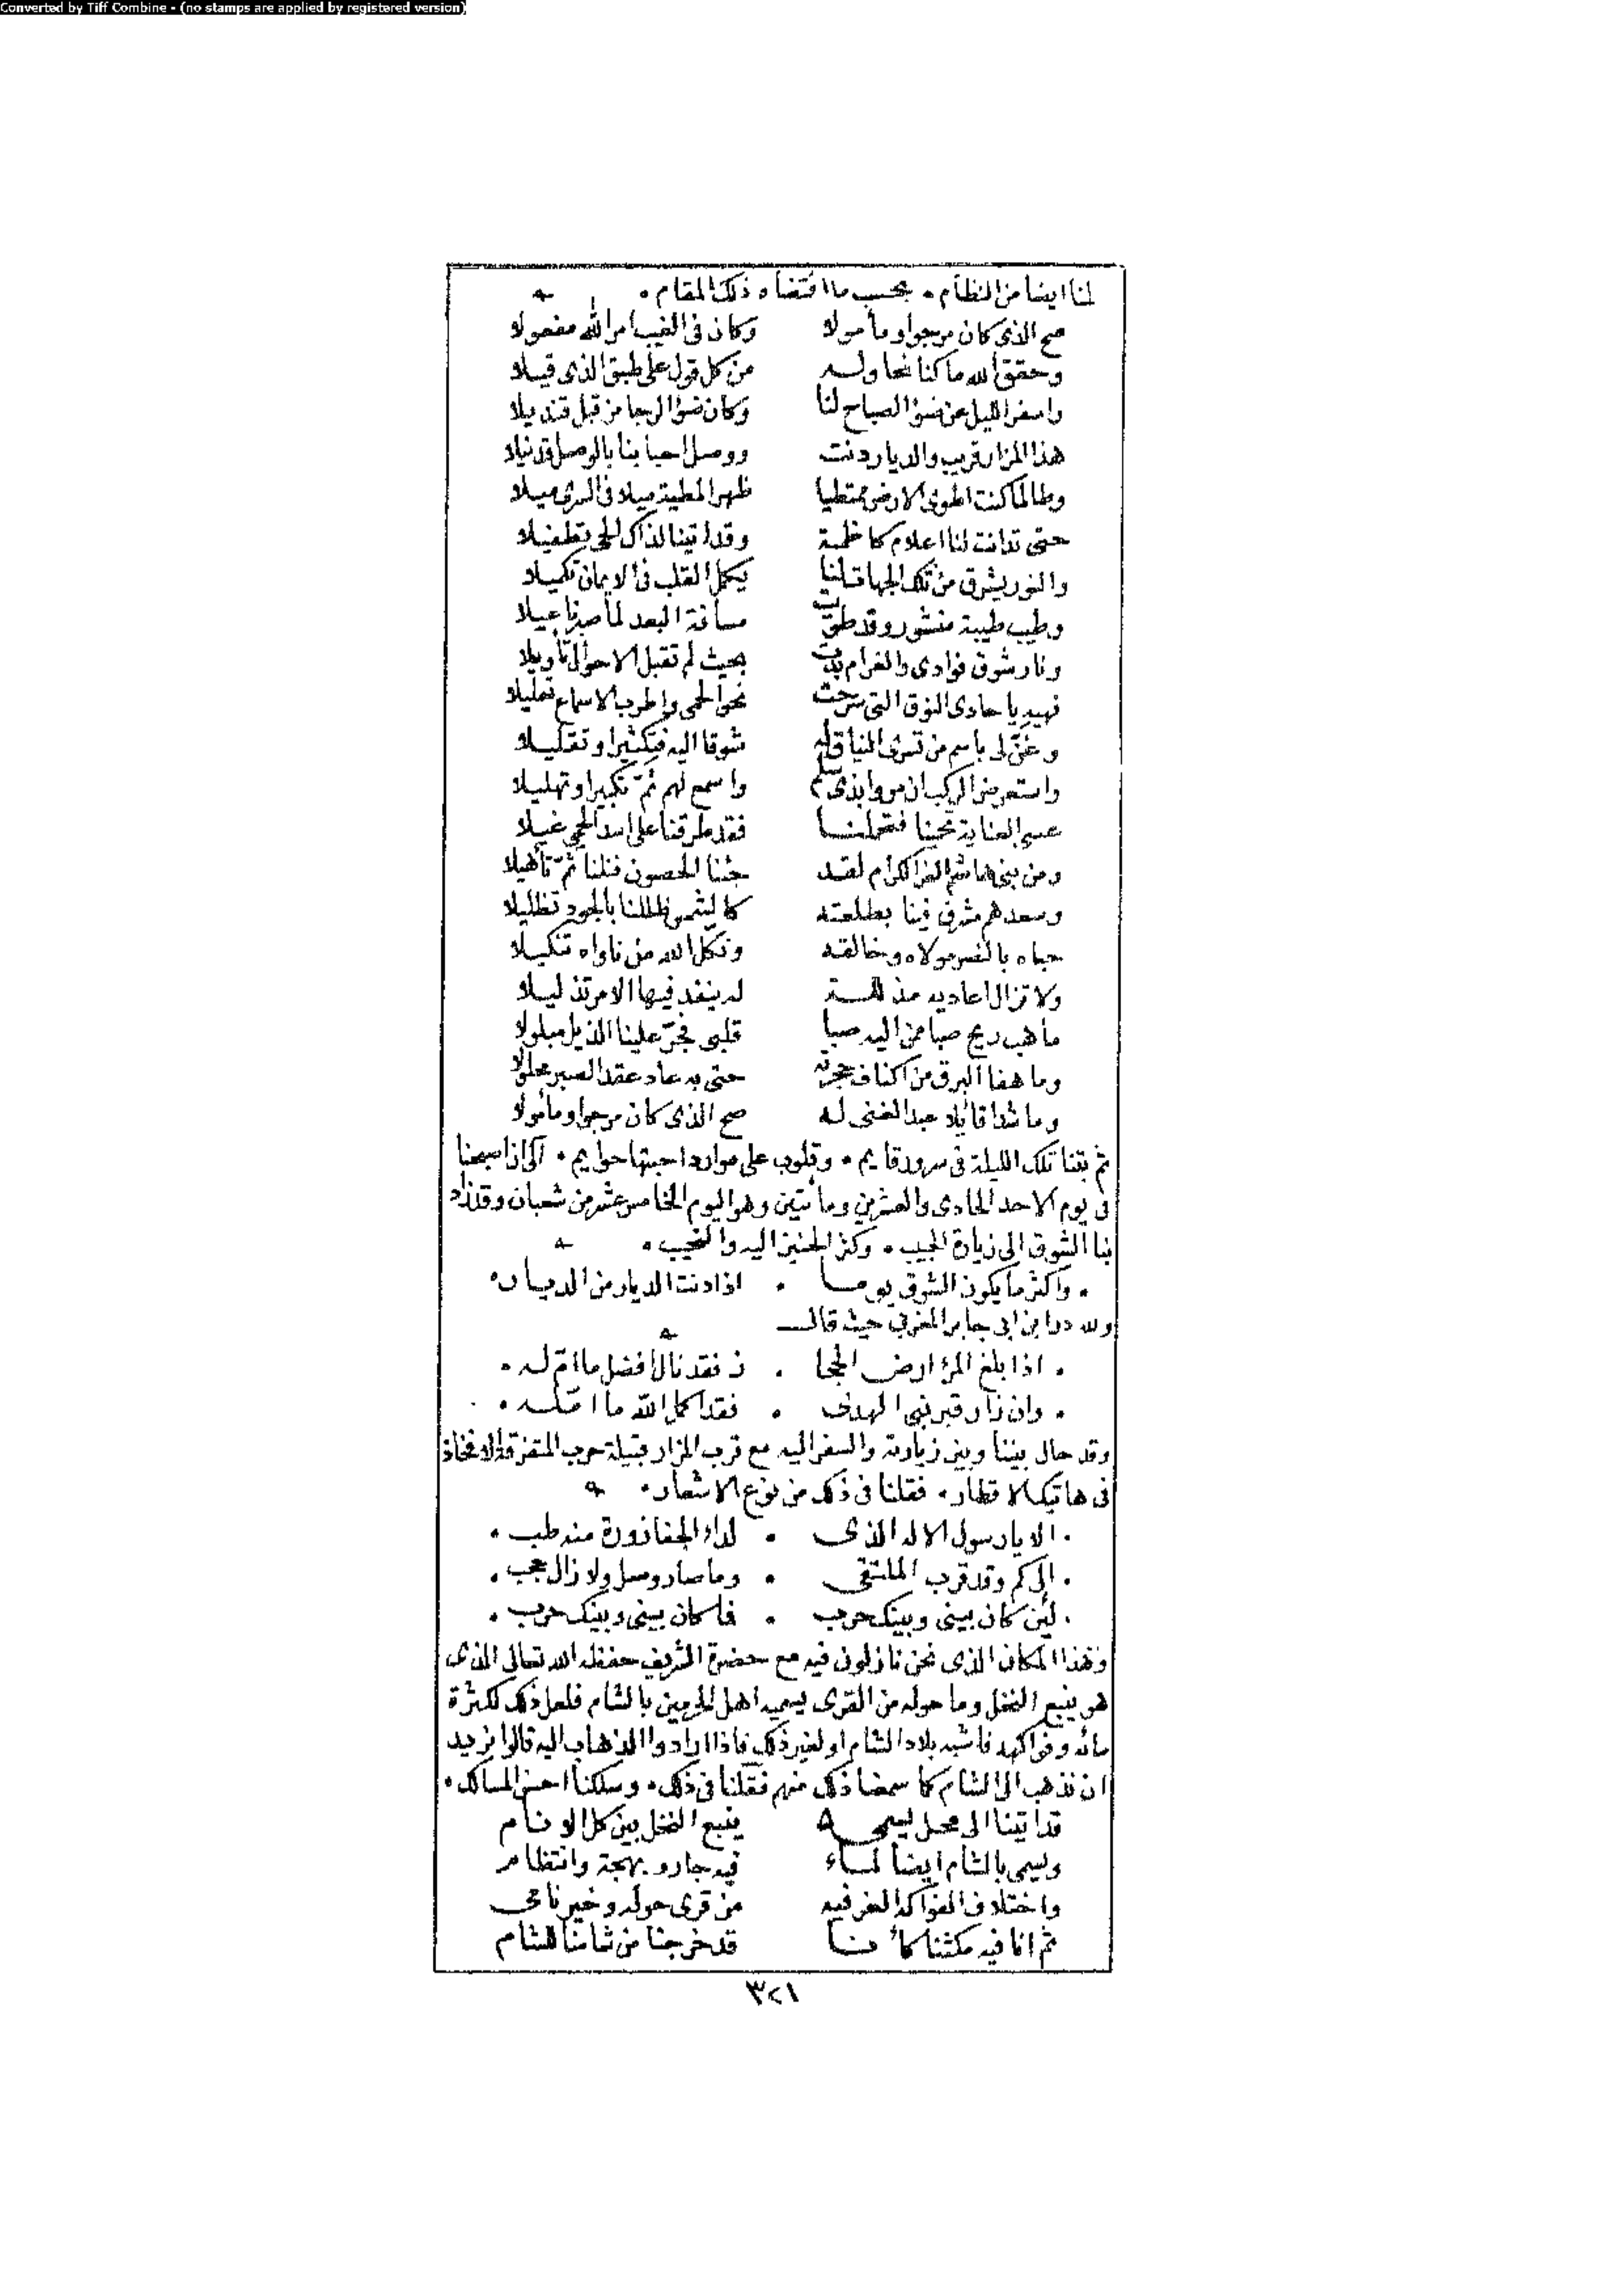 Converted by Tiff Combine - (no stamps are applied by registered version)
لنا ايضا من النظام • بحسب ما اقتضاه ذلك المقام •
صح الذى كان مرجوا ومأمولا وكان فى الغيب امر الله مفعولا
وحقق الله ما كنا نحاوله من كل قول على طبق الذى قيلا
واسفر الليل عن ضوء الصباح لنا وكان ضوء الرجا من قبل قنديلا
هذا المزار قريب والديار دنت ووصل احبابنا بالوصل قد نيلا
وطالما كنت اطوى الارض ممتطيا ظهر المطية ميلا فى السرى ميلا
حتى تدانت لنا اعلام كاظمة وقد اتينا لذاك الحى تطفيلا
والنور يشرق من تلك الجهات لنا يكمل القلب فى الايمان تكميلا
وطيب طيبة منشور وقد طوت مسافة البعد لما صبرنا عيلا
ونار شوق فوادى والغرام بدت بحيث لم تقبل الاحوال تأويلا
فهيد يا حادى النوق التى سرحت نحو الحمى واطرب الاسماع تعليلا
وغن لى باسم من تسرى النياق له شوقا اليه فتكثيرا وتقليلا
واستعرض الركب ان مروا بذى سلم واسمع لهم ثم تكبيرا وتهليلا
عسى العناية تحينا فتحملنا فقد طرقنا على اسد الحمى غيلا
ومن بنى هاشم الغر الكرام لقد جئنا الحصون فنلنا ثم تأهيلا
وسعدهم مشرق فينا بطلعته كالشمس ظللنا بالجود تظليلا
حباه بالنصر مولاه وخالقه ونكل الله من ناواه تنكيلا
ولا تزال اعاديه مذللة له ينفذ فيها الامر تذليلا
ما هب ريح صبا من اليه صبا قلبى فجر علينا الذيل مبلولا
وما هفا البرق من اكناف حجرته حتى به عاد عقد الصبر محلولا
وما شدا قائلا عبد الغنى له صح الذى كان مرجوا ومأمولا
ثم بتنا تلك الليلة فى سرور قايم • وقلوب على موارد احبتها حوايم • الى ان اصبحنا
فى يوم الاحد الحادى والعشرين ومأتين وهو اليوم الخامس عشر من شعبان وقد زاد
بنا الشوق الى زيارة الحبيب • وكثر الحنين اليه والنحيب •
• واكثر ما يكون الشوق يوما • اذا دنت الديار من الديار •
ولله در ابن ابى جابر المغربى حيث قال
• اذا بلغ المرؤ ارض الحجا • ز فقد نال افضل ما امّ له •
• وان زار قبر نبى الهدى • فقد اكمل الله ما امّله •
وقد حال بيننا وبين زيارته والسفر اليه مع قرب المزار قبيلة حرب المتفرقة الافخاذ
فى هاتيك الاقطار • فقلنا فى ذلك من نوع الاشعار •
• الا يا رسول الاله الذى • لداء الجفا زورة منه طب •
• الى كم وقد قرب الملتقى • وما صار وصل ولا زال عجب •
• لئن كان بينى وبينك حرب • فما كان بينى وبينك حرب •
وهذا المكان الذى نحن نازلون فيه مع حضرة الشريف حفظه الله تعالى الذى
هو ينبع النخل وما حوله من القرى يسميه اهل الحرمين بالشام فلعل ذلك لكثرة
مائه وفواكهه فاشبه بلاد الشام او لغير ذلك فاذا ارادوا الذهاب اليه قالوا نريد
ان نذهب الى الشام كما سمعنا ذلك منهم فقلنا فى ذلك • وسلكنا احسن المسالك •
قد اتينا الى محل يسمى ينبع النخل بين كل الانام
ويسمى بالشام ايضا لماء فيه جار وبهجة وانتظام
واختلاف الفواكه الغر فيه من قرى حوله وخير نامى
ثم انا فيه مكثنا كأنا قد خرجنا من شامنا للشام
٣٢١